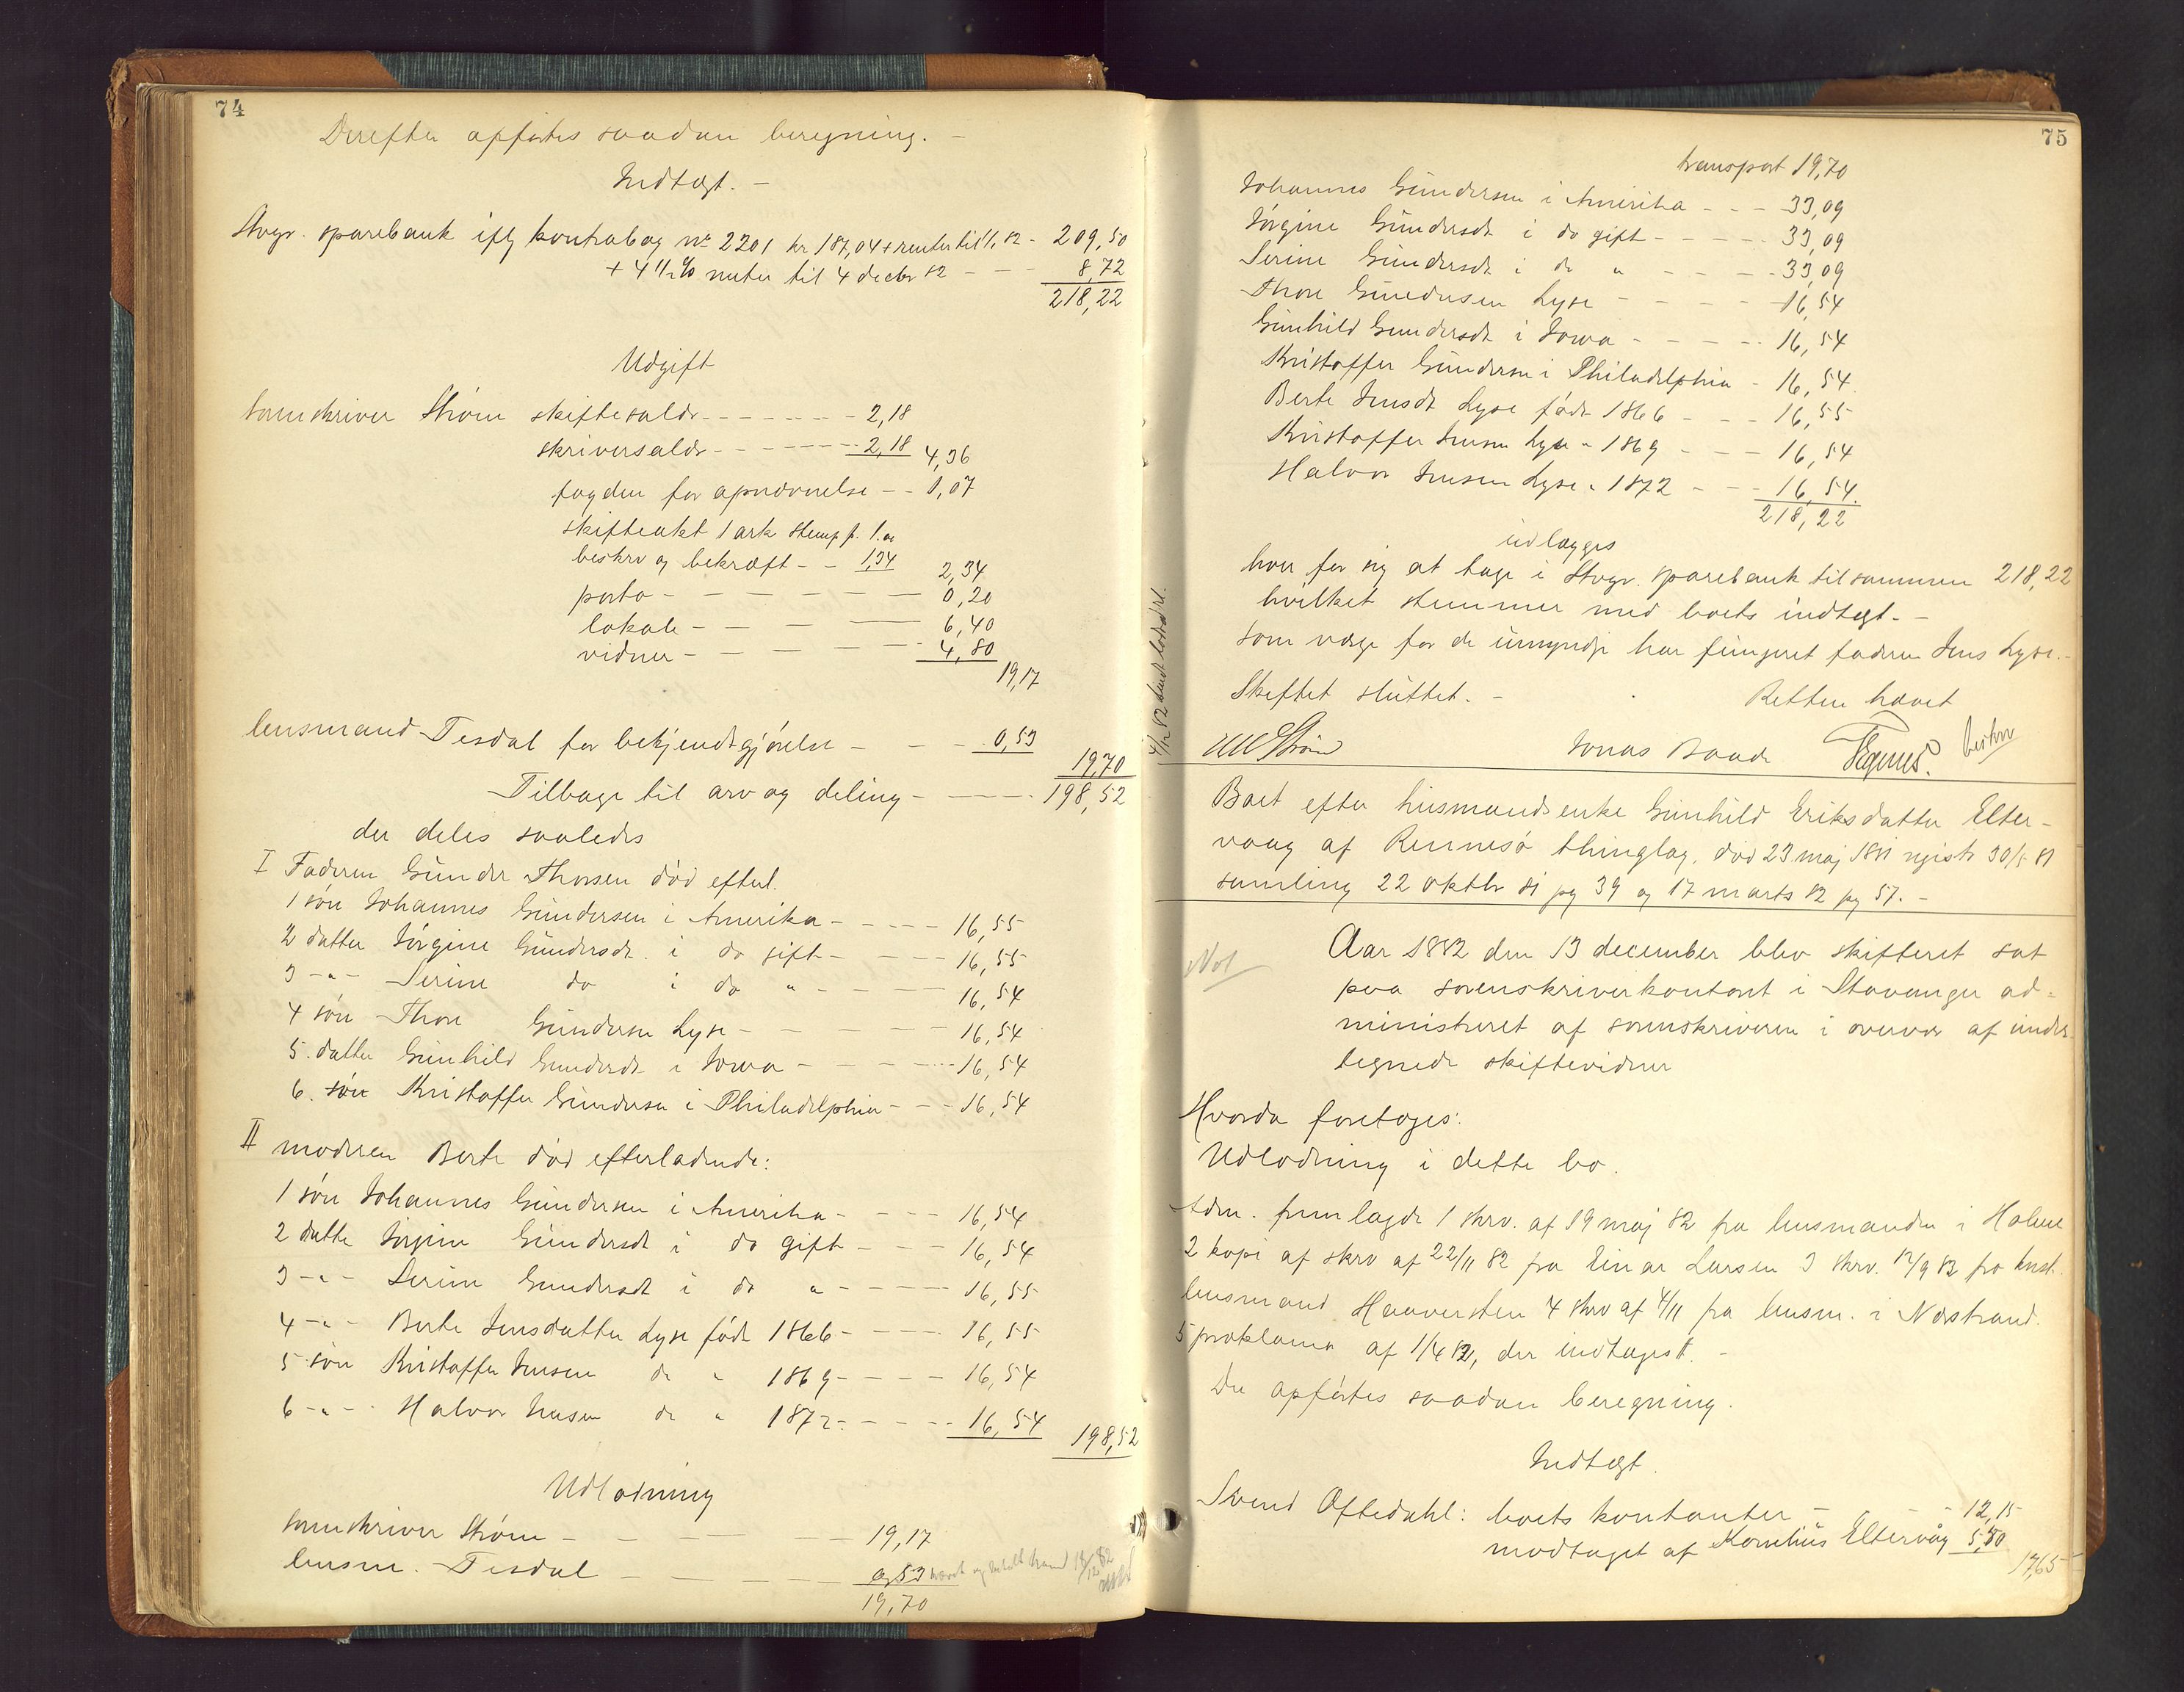 74
Derefter opførtes saadan beregning. -
Indtægt. -
Stvgr. sparebank iflg kontrabog nr 2201 kr 187,04 + renter til 1/1 82 - 209,50
+ 4 1/2 % renter til 4 decbr 82 - - - 8,72
218,22
Udgift
sorenskriver Strøm skiftesaldr - - - - - - 2,18
skriversaldr - - - - - - 2,18 4,36
fogden for opnævnelse - - 1,07
skifteakt 1 ark stemp p. 1.00
beskrv og bekræft - - 1,34 2,34
porto - - - - - 0,20
lokale - - - - 6,40
vidner - - - - - 4,80
19,17
lensmand Tesdal for bekjendtgjørelse - - - 0,53
19,70
Tilbage til arv og deling - - - - 198,52
der deles saaledes
I Faderen Gunder Thorsen død efterl.
1 søn Johannes Gundersen i Amerika - - - - 16,55
2 datter Jørgine Gundersdt. i do gift - - - - 16,55
3 - " - Serine do i do " - - - - 16,54
4 søn Thore Gundersen Lyse - - - - - 16,54
5. datter Gunhild Gundersdt i Iowa - - - - - 16,54
6. søn Kristoffer Gundersen i Philadelphia - - - 16,54
II moderen Berte død efterladende:
1 søn Johannes Gundersen i Amerika - - - - 16,54
2 datter Jørgine Gundersdt i do gift - - - 16,54
3 - " - Serine Gundersdt i do " - - - - 16,55
4 - " - Berte Jensdatter Lyse født 1866 - - - - 16,55
5 søn Kristoffer Jensen do " 1869 - - - - 16,54
6 - " - Halvor Jensen do " 1872 - - - - - 16,54 198,52
Udlodning
sorenskriver Strøm - - - - - 19,17
lensm. Tesdal - - - - - 0,53
19,70
75
transport 19,70
Johannes Gundersen i Amerika - - - 33,09
Jørgine Gundersdt i do gift - - - - - 33,09
Serine Gundersdt i do " - - - - - 33,09
Thore Gundersen Lyse - - - - - 16,54
Gunhild Gundersdt i Iowa - - - - - 16,54
Kristoffer Gundersen i Philadelphia - 16,54
Berte Jensdt Lyse født 1866 - - - 16,55
Kristoffer Jensen Lyse " 1869 - - - 16,54
Halvor Jensen Lyse " 1872 - - - 16,54
218,22
udlægges
hver for sig at tage i Stvgr. sparebank tilsammen 218,22
hvilket stemmer med boets indtægt. -
som værge for de umyndige har fungeret faderen Jens Lyse. -
Skiftet sluttet. - Retten hævet
Strøm Jonas Baade Tegnes. beskrv
Boet efter husmandsenke Gunhild Eriksdatter Elter-
vaag af Rennesø thinglag, død 23 maj 1881 registr 30/5 81
samling 22 oktbr 81 pg 39 og 17 marts 82 pg 57. -
Not
Aar 1882 den 13 december blev skifteret sat
paa sorenskriverkontoret i Stavanger ad-
ministreret af sorenskriveren i overvær af under-
tegnede skiftevidner
Hvorda foretoges:
Udlodning i dette bo.
Adm. fremlagde 1 skrv. af 19 maj 82 fra lensmanden i Haline
2 kopi af skrv af 22/11 82 fra Einar Larsen 3 skrv. 12/9 82 fra knst.
lensmand Haaversten 4 skrv af 4/11 fra lensm. i Nærstrand.
5 proklama af 1/4 82, der indtages. -
Der opførtes saadan beregning.
Indtægt.
Svend Oftedahl: boets kontanter - - - 12,15
modtaget af Kornelius Eltervåg 5,50
17,65